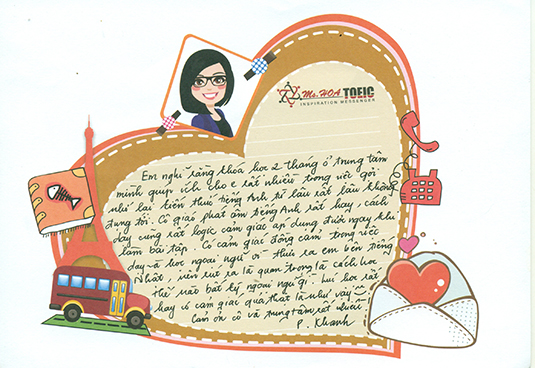 Ms. HOA TOEIC
INSPIRATION MESSENGER
Em nghĩ rằng khoá học 2 tháng ở trung tâm
mình giúp ích cho e rất nhiều trong việc gợi
nhớ lại kiến thức tiếng Anh từ lâu rất lâu không
dùng tới. Cô giáo phát âm tiếng Anh rất hay, cách
dạy cũng rất logic cảm giác áp dụng được ngay khi
làm bài tập. Có cảm giác đồng cảm trong việc
dạy và học ngoại ngữ vì thực ra em bên tiếng
Nhật, nên rút ra là quan trọng là cách học
thế nào bất kỳ ngoại ngữ gì. học rất
hay có cảm giác quả thật là như vậy
Cảm ơn cô và trung tâm rất nhiều
P. Khanh